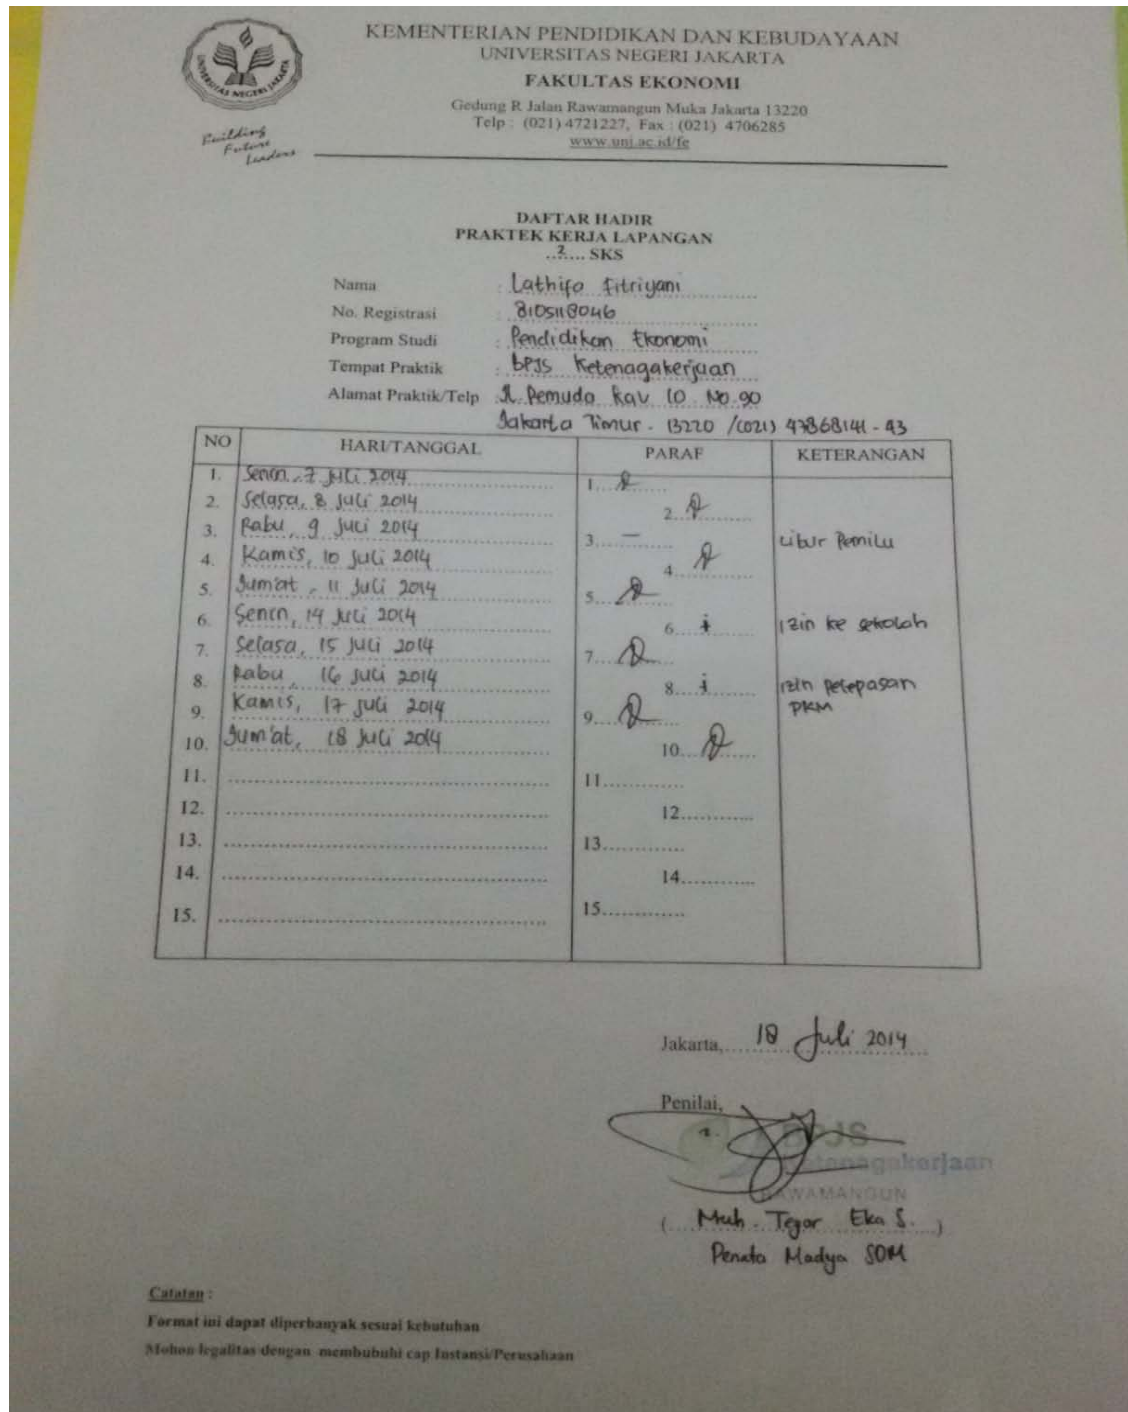 KEMENTERIAN PENDIDIKAN DAN KEBUDAYAAN
UNIVERSITAS NEGERI JAKARTA
FAKULTAS EKONOMI
Gedung R Jalan Rawamangun Muka Jakarta 13220
Telp : (021) 4721227, Fax : (021) 4706285
www.unj.ac.id/fe
UNIVERSITAS NEGERI JAKARTA
Building
Future
Leaders
DAFTAR HADIR
PRAKTEK KERJA LAPANGAN
..2.... SKS
Nama : Lathifa Fitriyani
No. Registrasi : 8105118046
Program Studi : Pendidikan Ekonomi
Tempat Praktik : BPJS Ketenagakerjaan
Alamat Praktik/Telp : Jl. Pemuda Kav 10 No.90
Jakarta Timur - 13220 /(021) 47868141 - 43
NO HARI/TANGGAL PARAF KETERANGAN
1. Senin, 7 Juli 2014 1.
2. Selasa, 8 Juli 2014 2.
3. Rabu, 9 Juli 2014 3. – Libur Pemilu
4. Kamis, 10 Juli 2014 4.
5. Jum'at, 11 Juli 2014 5.
6. Senin, 14 Juli 2014 6. i Izin ke sekolah
7. Selasa, 15 Juli 2014 7.
8. Rabu 16 Juli 2014 8. i Izin Pelepasan
PKM
9. Kamis, 17 Juli 2014 9.
10. Jum'at, 18 Juli 2014 10.
11. 11.
12. 12.
13. 13.
14. 14.
15. 15.
Jakarta, 18 Juli 2014
Penilai,
BPJS
Ketenagakerjaan
RAWAMANGUN
( Muh. Tegar Eka S. )
Penata Madya SDM
Catatan :
Format ini dapat diperbanyak sesuai kebutuhan
Mohon legalitas dengan membubuhi cap Instansi/Perusahaan